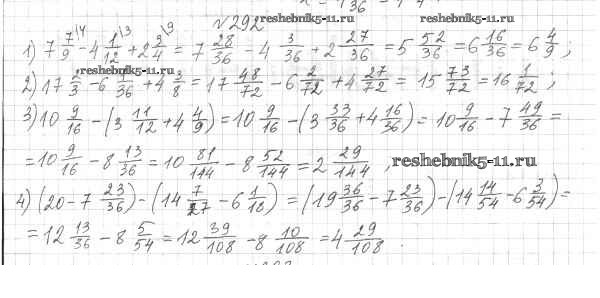 №292
reshebnik5-11.ru
reshebnik5-11.ru
1) 7 7/9 - 4 1/12 + 2 3/4 = 7 28/36 - 4 3/36 + 2 27/36 = 5 52/36 = 6 16/36 = 6 4/9 ;
reshebnik5-11.ru
2) 17 2/3 - 6 1/36 + 4 3/8 = 17 48/72 - 6 2/72 + 4 27/72 = 15 73/72 = 16 1/72 ;
3) 10 9/16 - (3 11/12 + 4 4/9) = 10 9/16 - (3 33/36 + 4 16/36) = 10 9/16 - 7 49/36 =
= 10 9/16 - 8 13/36 = 10 81/144 - 8 52/144 = 2 29/144 , reshebnik5-11.ru
4) (20 - 7 23/36) - (14 7/27 - 6 1/18) = (19 36/36 - 7 23/36) - (14 14/54 - 6 3/54) =
= 12 13/36 - 8 5/54 = 12 39/108 - 8 10/108 = 4 29/108 .